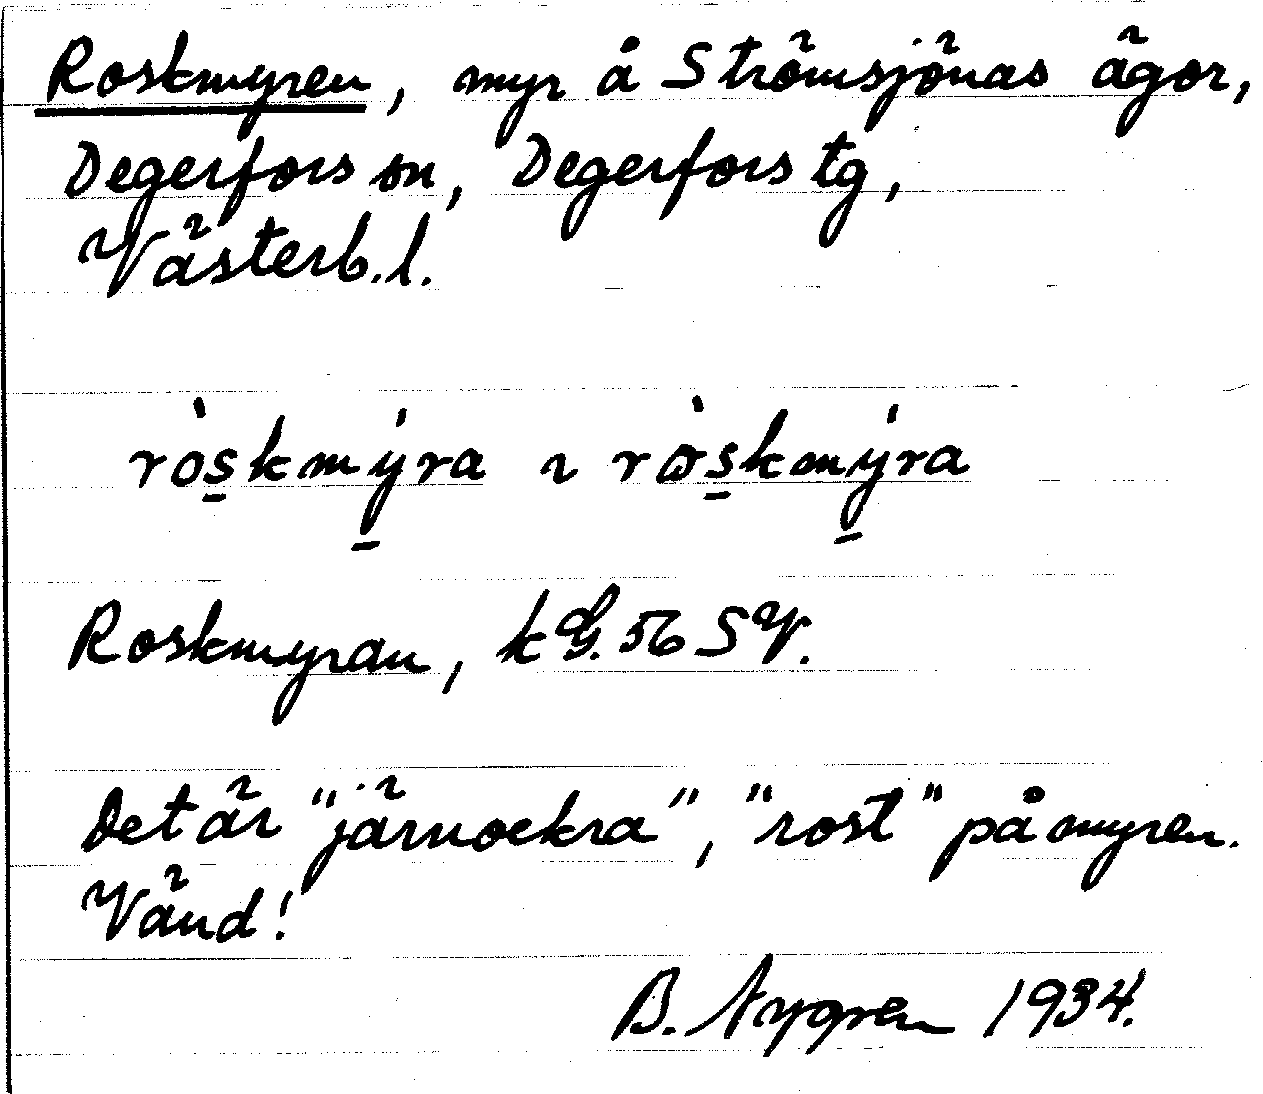 Roskmyren, myr å Strömsjönäs ägor,
Degerfors sn, Degerfors tg,
Västerb.l.
ròs̱kmýra ~ rɷ̀s̱kmýra
Roskmyran, kG. 56 SV.
Det är "järnockra", "rost" på myren.
Vänd!
B. Nygren 1934.